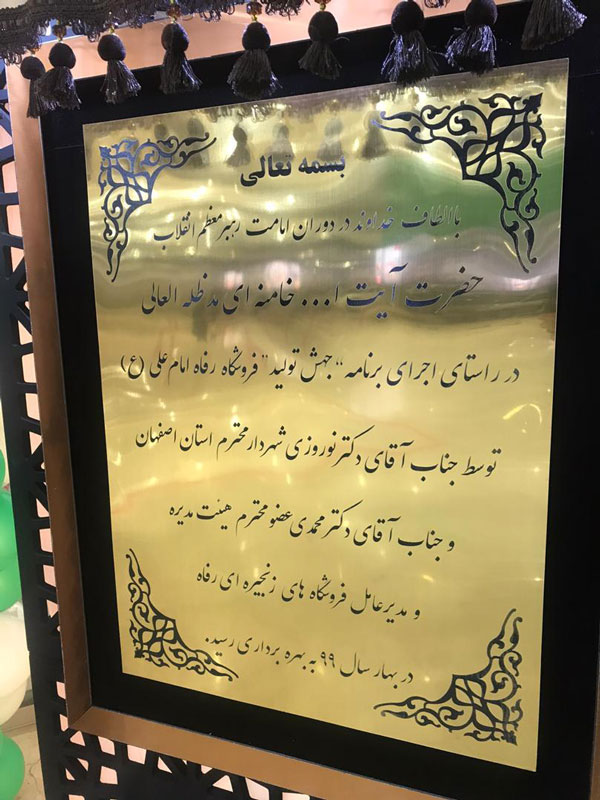 بسمه تعالی
باالطاف خداوند در دوران امامت رهبر معظم انقلاب
حضرت آیت ا... خامنه ای مدظله العالی
در راستای اجرای برنامه "جهش تولید" فروشگاه رفاه امام علی (ع)
توسط جناب آقای دکتر نوروزی شهردار محترم استان اصفهان
و جناب آقای دکتر محمدی عضو محترم هیئت مدیره
و مدیرعامل فروشگاه های زنجیره ای رفاه
در بهار سال ۹۹ به بهره برداری رسید.